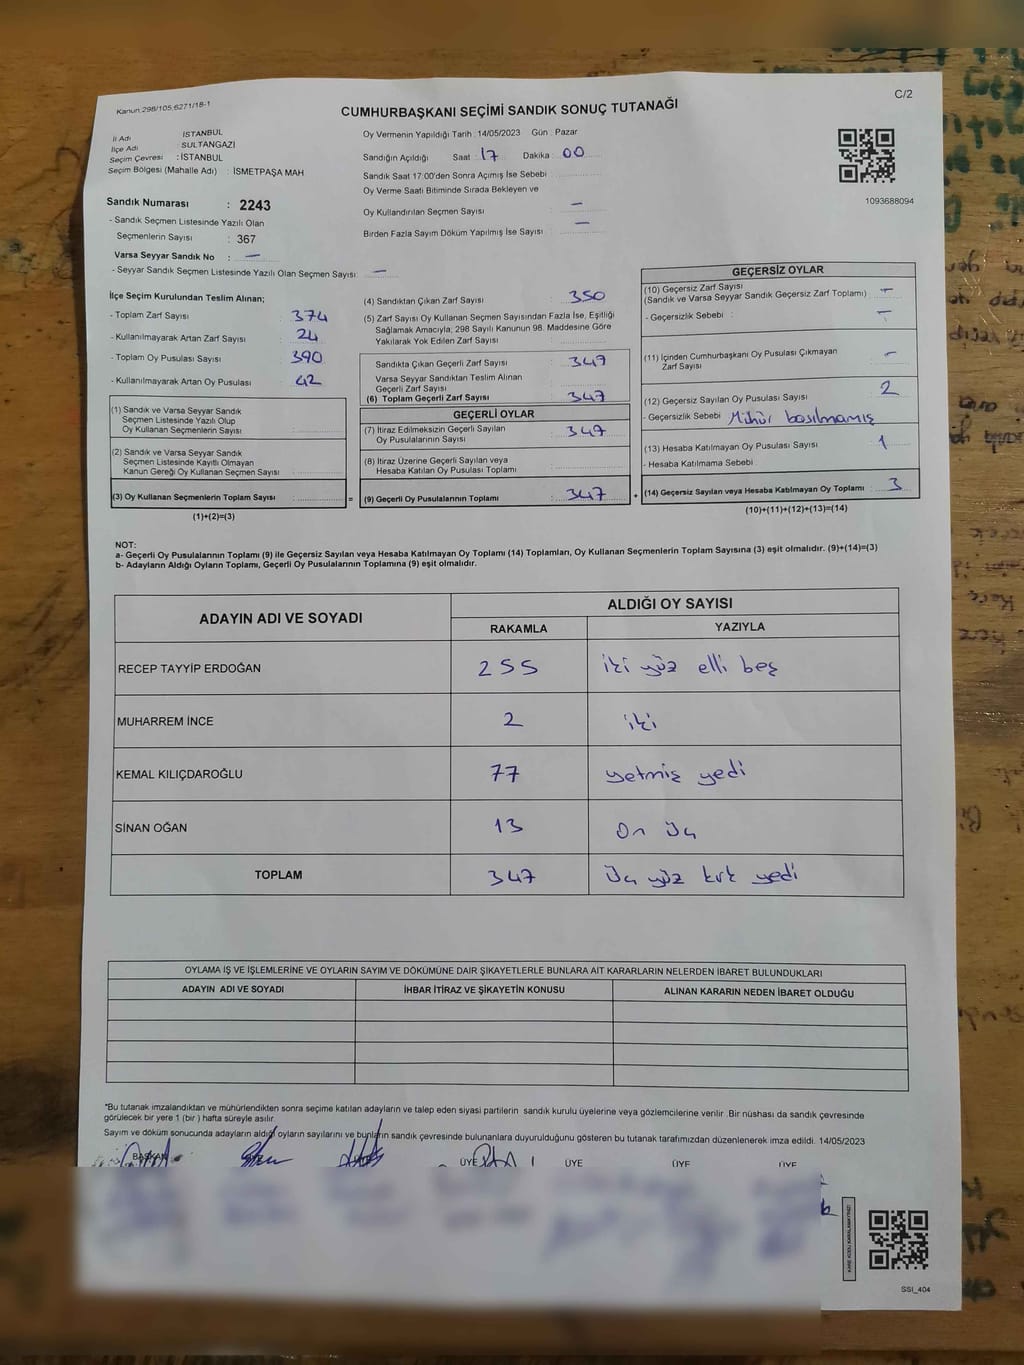 Kanun:298/105,6271/18-1
C/2
CUMHURBAŞKANI SEÇİMİ SANDIK SONUÇ TUTANAĞI
İl Adı : İSTANBUL
İlçe Adı : SULTANGAZİ
Seçim Çevresi : İSTANBUL
Seçim Bölgesi (Mahalle Adı) : İSMETPAŞA MAH
Sandık Numarası : 2243
- Sandık Seçmen Listesinde Yazılı Olan
Seçmenlerin Sayısı : 367
Varsa Seyyar Sandık No : —
- Seyyar Sandık Seçmen Listesinde Yazılı Olan Seçmen Sayısı: —
Oy Vermenin Yapıldığı Tarih : 14/05/2023 Gün : Pazar
Sandığın Açıldığı Saat : 17 Dakika : 00
Sandık Saat 17:00'den Sonra Açımış İse Sebebi :
Oy Verme Saati Bitiminde Sırada Bekleyen ve
Oy Kullandırılan Seçmen Sayısı : —
Birden Fazla Sayım Döküm Yapılmış İse Sayısı : —
1093688094
İlçe Seçim Kurulundan Teslim Alınan;
- Toplam Zarf Sayısı : 374
- Kullanılmayarak Artan Zarf Sayısı : 24
- Toplam Oy Pusulası Sayısı : 390
- Kullanılmayarak Artan Oy Pusulası : 42
(1) Sandık ve Varsa Seyyar Sandık
Seçmen Listesinde Yazılı Olup
Oy Kullanan Seçmenlerin Sayısı :
(2) Sandık ve Varsa Seyyar Sandık
Seçmen Listesinde Kayıtlı Olmayan
Kanun Gereği Oy Kullanan Seçmen Sayısı :
(3) Oy Kullanan Seçmenlerin Toplam Sayısı : =
(1)+(2)=(3)
(4) Sandıktan Çıkan Zarf Sayısı : 350
(5) Zarf Sayısı Oy Kullanan Seçmen Sayısından Fazla İse, Eşitliği
Sağlamak Amacıyla; 298 Sayılı Kanunun 98. Maddesine Göre
Yakılarak Yok Edilen Zarf Sayısı :
Sandıkta Çıkan Geçerli Zarf Sayısı : 347
Varsa Seyyar Sandıktan Teslim Alınan
Geçerli Zarf Sayısı :
(6) Toplam Geçerli Zarf Sayısı : 347
GEÇERLİ OYLAR
(7) İtiraz Edilmeksizin Geçerli Sayılan
Oy Pusulalarının Sayısı : 347
(8) İtiraz Üzerine Geçerli Sayılan veya
Hesaba Katılan Oy Pusulası Toplamı :
(9) Geçerli Oy Pusulalarının Toplamı : 347 +
GEÇERSİZ OYLAR
(10) Geçersiz Zarf Sayısı
(Sandık ve Varsa Seyyar Sandık Geçersiz Zarf Toplamı) : —
- Geçersizlik Sebebi : —
(11) İçinden Cumhurbaşkanı Oy Pusulası Çıkmayan
Zarf Sayısı : —
(12) Geçersiz Sayılan Oy Pusulası Sayısı : 2
- Geçersizlik Sebebi : Mühür basılmamış
(13) Hesaba Katılmayan Oy Pusulası Sayısı : 1
- Hesaba Katılmama Sebebi
(14) Geçersiz Sayılan veya Hesaba Katılmayan Oy Toplamı : 3
(10)+(11)+(12)+(13)=(14)
NOT:
a- Geçerli Oy Pusulalarının Toplamı (9) ile Geçersiz Sayılan veya Hesaba Katılmayan Oy Toplamı (14) Toplamları, Oy Kullanan Seçmenlerin Toplam Sayısına (3) eşit olmalıdır. (9)+(14)=(3)
b- Adayların Aldığı Oyların Toplamı, Geçerli Oy Pusulalarının Toplamına (9) eşit olmalıdır.
ADAYIN ADI VE SOYADI ALDIĞI OY SAYISI
RAKAMLA YAZIYLA
RECEP TAYYİP ERDOĞAN 255 iki yüz elli beş
MUHARREM İNCE 2 iki
KEMAL KILIÇDAROĞLU 77 yetmiş yedi
SİNAN OĞAN 13 On üç
TOPLAM 347 Üç yüz kırk yedi
OYLAMA İŞ VE İŞLEMLERİNE VE OYLARIN SAYIM VE DÖKÜMÜNE DAİR ŞİKAYETLERLE BUNLARA AİT KARARLARIN NELERDEN İBARET BULUNDUKLARI
ADAYIN ADI VE SOYADI İHBAR İTİRAZ VE ŞİKAYETİN KONUSU ALINAN KARARIN NEDEN İBARET OLDUĞU
*Bu tutanak imzalandıktan ve mühürlendikten sonra seçime katılan adayların ve talep eden siyasi partilerin sandık kurulu üyelerine veya gözlemcilerine verilir .Bir nüshası da sandık çevresinde
görülecek bir yere 1 (bir ) hafta süreyle asılır.
Sayım ve döküm sonucunda adayların aldığı oyların sayılarını ve bunların sandık çevresinde bulunanlara duyurulduğunu gösteren bu tutanak tarafımızdan düzenlenerek imza edildi. 14/05/2023
BAŞKAN ÜYE ÜYE ÜYE ÜYE
KARE KODU KARALAMAYINIZ!
SSI_404